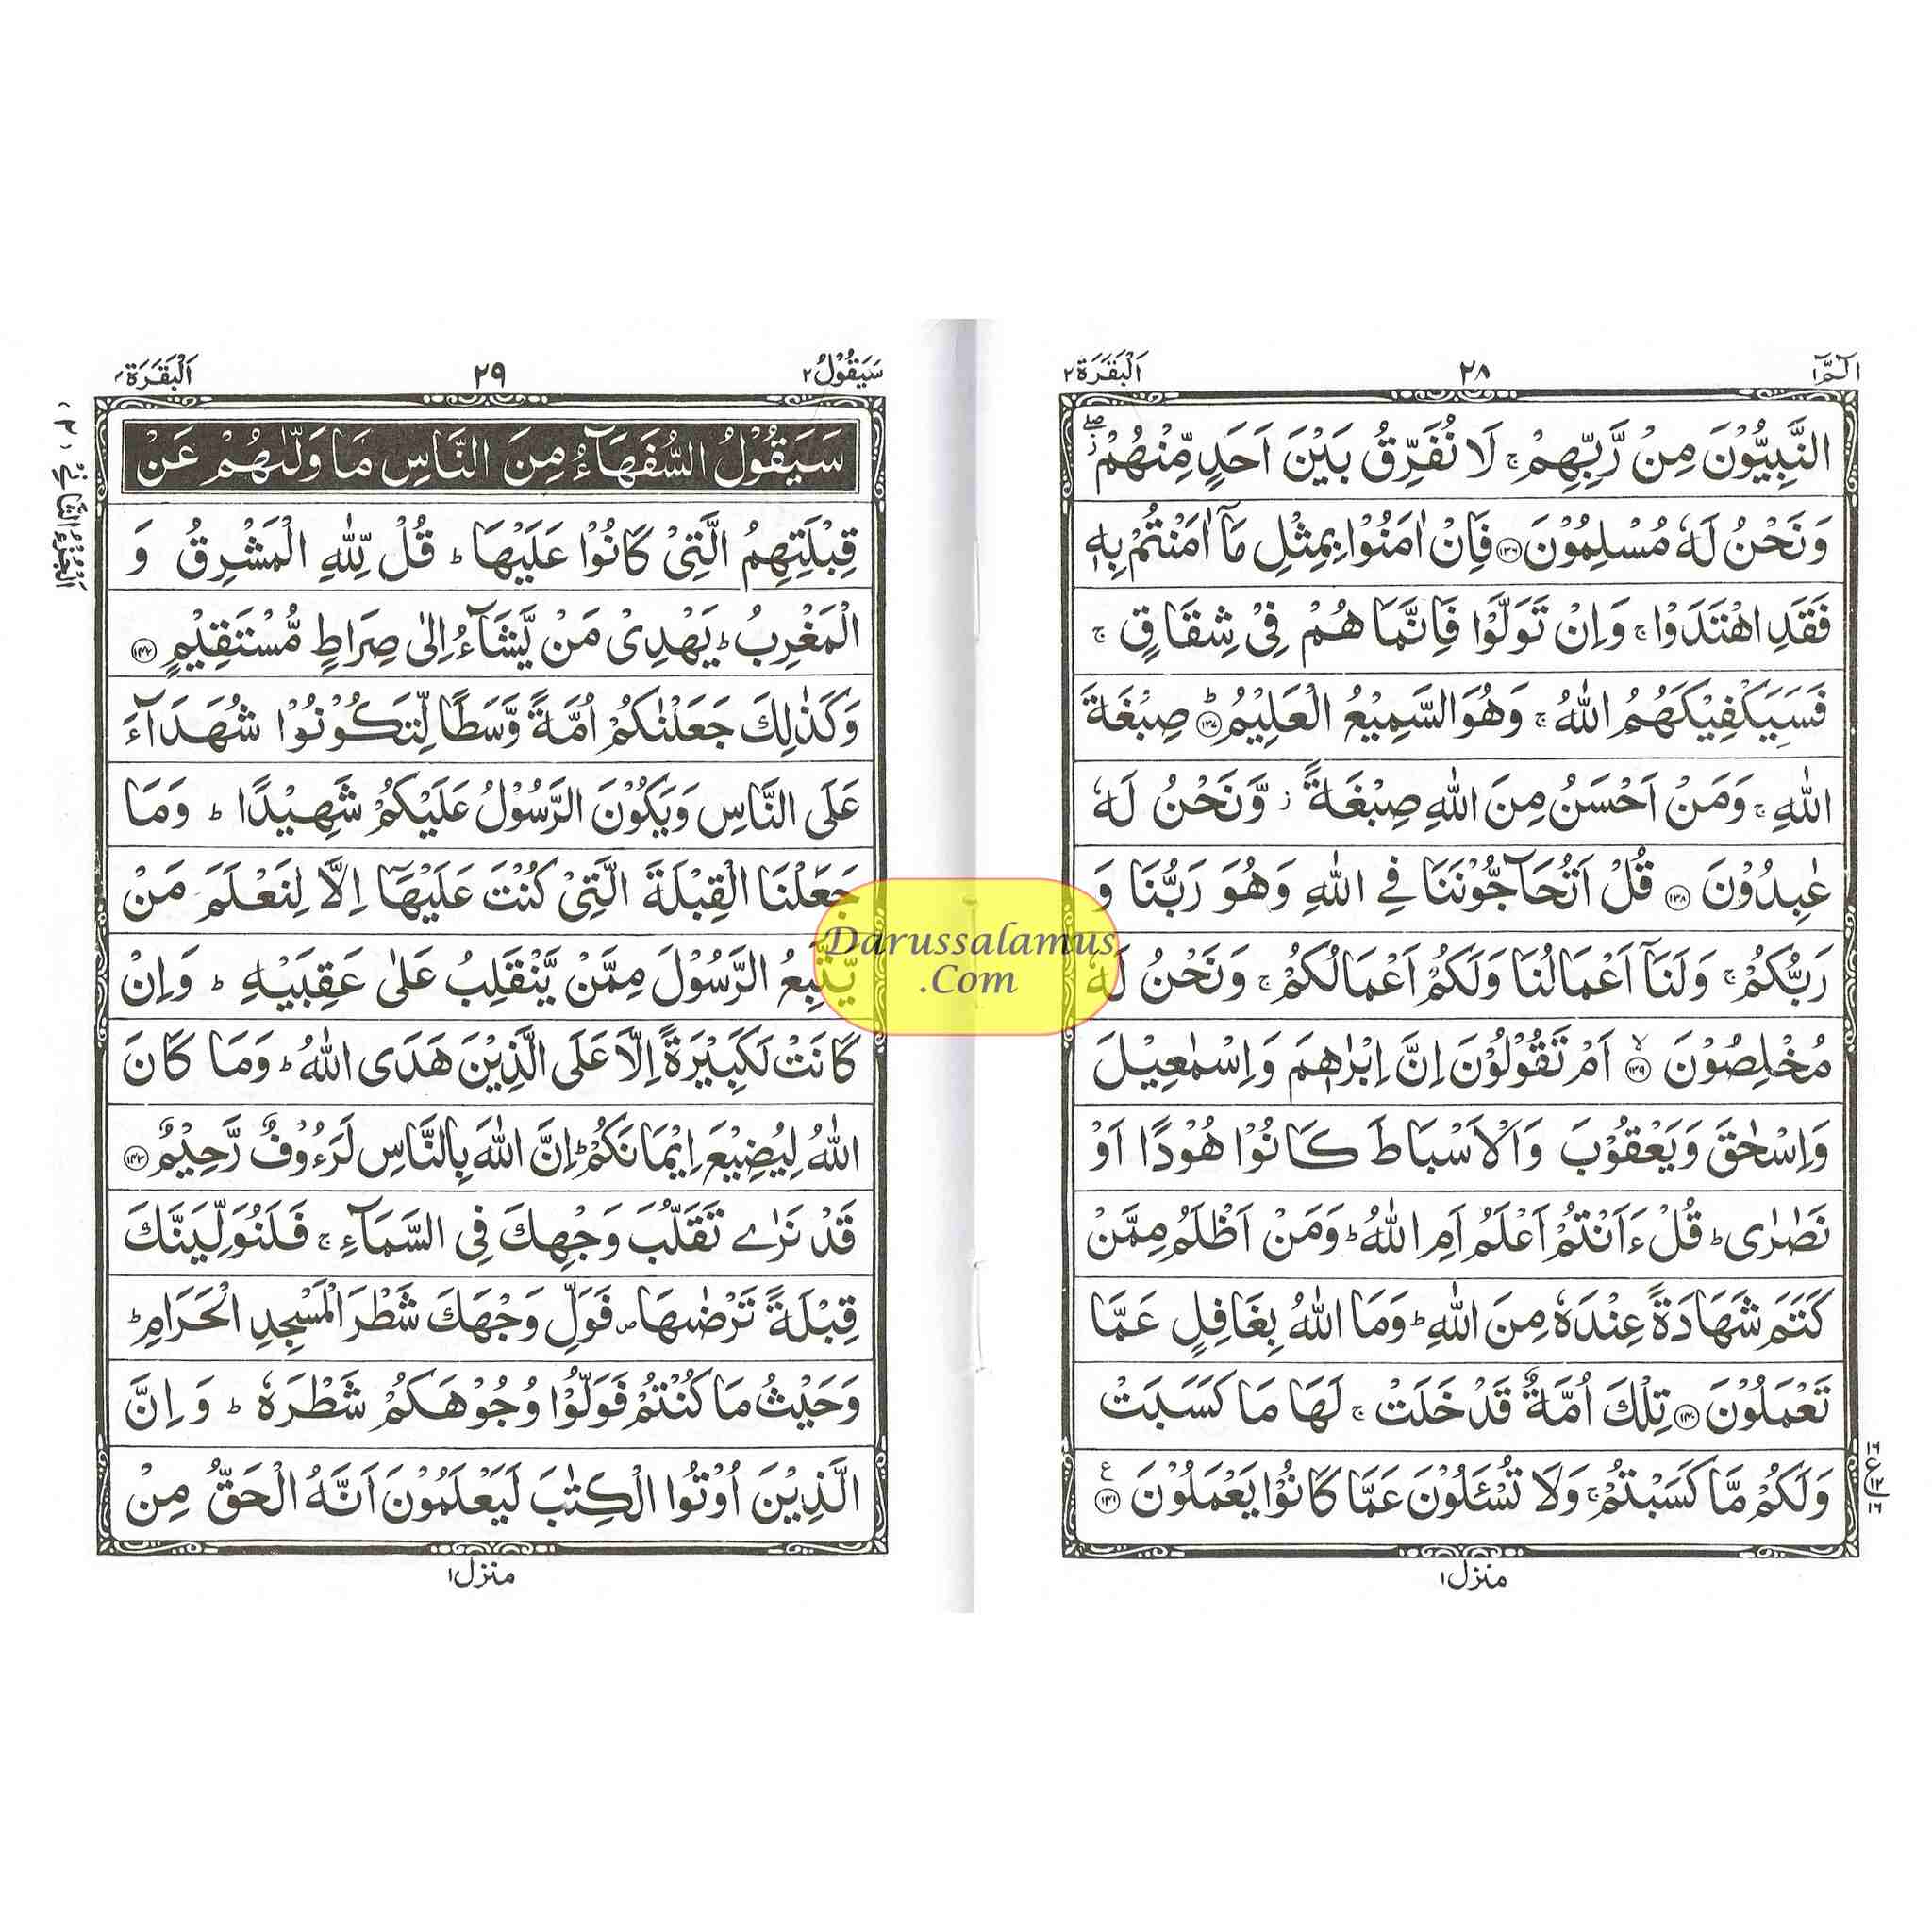 الٓمّٓ ١
٢٨
اَلْبَقَرَة ٢
النَّبِيُّوْنَ مِنْ رَّبِّهِمْ ۚ لَا نُفَرِّقُ بَيْنَ اَحَدٍ مِّنْهُمْ ۖز
وَنَحْنُ لَهٗ مُسْلِمُوْنَ ﴿۱۳۶﴾ فَاِنْ اٰمَنُوْا بِمِثْلِ مَآ اٰمَنْتُمْ بِهٖ
فَقَدِ اهْتَدَوْا ۚ وَاِنْ تَوَلَّوْا فَاِنَّمَا هُمْ فِيْ شِقَاقٍ ۚ
فَسَيَكْفِيْكَهُمُ اللّٰهُ ۚ وَهُوَ السَّمِيْعُ الْعَلِيْمُ ؕ﴿۱۳۷﴾ صِبْغَةَ
اللّٰهِ ۚ وَمَنْ اَحْسَنُ مِنَ اللّٰهِ صِبْغَةً ز وَّنَحْنُ لَهٗ
عٰبِدُوْنَ ﴿۱۳۸﴾ قُلْ اَتُحَآجُّوْنَنَا فِي اللّٰهِ وَهُوَ رَبُّنَا وَ
رَبُّكُمْ ۚ وَلَنَآ اَعْمَالُنَا وَلَكُمْ اَعْمَالُكُمْ ۚ وَنَحْنُ لَهٗ
مُخْلِصُوْنَ ۙ﴿۱۳۹﴾ اَمْ تَقُوْلُوْنَ اِنَّ اِبْرٰهٖمَ وَاِسْمٰعِيْلَ
وَاِسْحٰقَ وَيَعْقُوْبَ وَالْاَسْبَاطَ كَانُوْا هُوْدًا اَوْ
نَصٰرٰى ؕ قُلْ ءَاَنْتُمْ اَعْلَمُ اَمِ اللّٰهُ ؕ وَمَنْ اَظْلَمُ مِمَّنْ
كَتَمَ شَهَادَةً عِنْدَهٗ مِنَ اللّٰهِ ؕ وَمَا اللّٰهُ بِغَافِلٍ عَمَّا
تَعْمَلُوْنَ ﴿۱۴۰﴾ تِلْكَ اُمَّةٌ قَدْ خَلَتْ ۚ لَهَا مَا كَسَبَتْ
وَلَكُمْ مَّا كَسَبْتُمْ ۚ وَلَا تُسْـَٔلُوْنَ عَمَّا كَانُوْا يَعْمَلُوْنَ ﴿۱۴۱﴾ ع
١٦
ع ١٢
١٦
منزل ١
سَيَقُوْلُ ٢
٢٩
اَلْبَقَرَة ٢
سَيَقُوْلُ السُّفَهَآءُ مِنَ النَّاسِ مَا وَلّٰىهُمْ عَنْ
قِبْلَتِهِمُ الَّتِيْ كَانُوْا عَلَيْهَا ؕ قُلْ لِّلّٰهِ الْمَشْرِقُ وَ
الْمَغْرِبُ ؕ يَهْدِيْ مَنْ يَّشَآءُ اِلٰى صِرَاطٍ مُّسْتَقِيْمٍ ﴿۱۴۲﴾
وَكَذٰلِكَ جَعَلْنٰكُمْ اُمَّةً وَّسَطًا لِّتَكُوْنُوْا شُهَدَآءَ
عَلَى النَّاسِ وَيَكُوْنَ الرَّسُوْلُ عَلَيْكُمْ شَهِيْدًا ؕ وَمَا
جَعَلْنَا الْقِبْلَةَ الَّتِيْ كُنْتَ عَلَيْهَآ اِلَّا لِنَعْلَمَ مَنْ
يَّتَّبِعُ الرَّسُوْلَ مِمَّنْ يَّنْقَلِبُ عَلٰى عَقِبَيْهِ ؕ وَاِنْ
كَانَتْ لَكَبِيْرَةً اِلَّا عَلَى الَّذِيْنَ هَدَى اللّٰهُ ؕ وَمَا كَانَ
اللّٰهُ لِيُضِيْعَ اِيْمَانَكُمْ ؕ اِنَّ اللّٰهَ بِالنَّاسِ لَرَءُوْفٌ رَّحِيْمٌ ﴿۱۴۳﴾
قَدْ نَرٰى تَقَلُّبَ وَجْهِكَ فِي السَّمَآءِ ۚ فَلَنُوَلِّيَنَّكَ
قِبْلَةً تَرْضٰىهَا ص فَوَلِّ وَجْهَكَ شَطْرَ الْمَسْجِدِ الْحَرَامِ ؕ
وَحَيْثُ مَا كُنْتُمْ فَوَلُّوْا وُجُوْهَكُمْ شَطْرَهٗ ؕ وَاِنَّ
الَّذِيْنَ اُوْتُوا الْكِتٰبَ لَيَعْلَمُوْنَ اَنَّهُ الْحَقُّ مِنْ
اَلْجُزْءُ الثَّانِيْ (٢)
منزل ١
Darussalamus
.Com